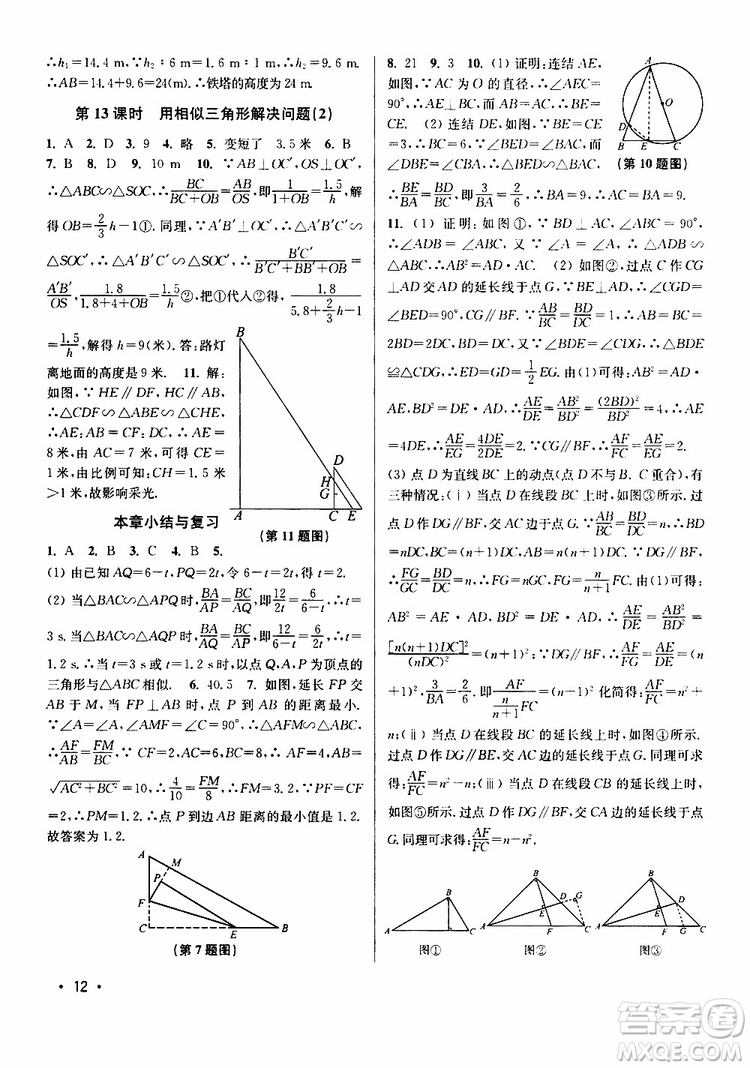 ∴h₁=14.4 m.∵h₂∶6 m=1.6∶1,∴h₂=9.6 m.
∴AB=14.4+9.6=24(m).∴铁塔的高度为 24 m.
第 13 课时 用相似三角形解决问题(2)
1. A 2. D 3. 9 4. 略 5. 变短了 3.5 米 6. B
7. B 8. D 9. 10 m 10. ∵AB⊥OC′,OS⊥OC′,
∴△ABC∽△SOC.∴BC/(BC+OB)=AB/OS,即1/(1+OB)=1.5/h,解
得 OB=2/3h-1①. 同理,∵A′B′⊥OC′,∴△A′B′C′∽
△SOC′,∴B′C′/(B′C′+BB′+OB)=
A′B′/OS,1.8/(1.8+4+OB)=1.5/h②,把①代人②得,1.8/(5.8+2/3h-1)
=1.5/h,解得 h=9(米). 答:路灯
离地面的高度是 9 米. 11. 解:
如图,∵HE∥DF,HC∥AB,
∴△CDF∽△ABE∽△CHE,
∴AE:AB=CF:DC,∴AE=
8 米,由 AC=7 米,可得 CE=1
米,由比例可知:CH=1.5 米
>1 米,故影响采光.
B
D
H
G
A
C E
(第 11 题图)
本章小结与复习
1. A 2. B 3. C 4. B 5.
(1) 由已知 AQ=6-t,PQ=2t,令 6-t=2t,得 t=2.
(2) 当△BAC∽△APQ 时,BA/AP=BC/AQ,即12/2t=6/(6-t),∴t=
3 s. 当△ABC∽△AQP 时,BA/AQ=BC/AP,∴12/(6-t)=6/2t,∴t=
1.2 s.∴当 t=3 s 或 t=1.2 s 时,以点 Q、A、P 为顶点的
三角形与△ABC 相似. 6. 40.5 7. 如图,延长 FP 交
AB 于 M,当 FP⊥AB 时,点 P 到 AB 的距离最小.
∵∠A=∠A,∠AMF=∠C=90°,∴△AFM∽△ABC,
∴AF/AB=FM/BC.∵CF=2,AC=6,BC=8,∴AF=4,AB=
√(AC²+BC²)=10,∴4/10=FM/8,∴FM=3.2,∵PF=CF=
2,∴PM=1.2.∴点 P 到边 AB 距离的最小值是 1.2.
故答案为 1.2.
A
M
P
F
C E B
(第 7 题图)
8. 21 9. 3 10. (1) 证明:连结 AE,
如图,∵AC 为⊙O 的直径,∴∠AEC=
90°,∴AE⊥BC,而 AB=AC,∴BE=
CE. (2) 连结 DE,如图,∵BE=CE=
3,∴BC=6,∵∠BED=∠BAC,而
∠DBE=∠CBA,∴△BED∽△BAC,
∴BE/BA=BD/BC,即3/BA=2/6,∴BA=9.
A
O
D
B E C
(第 10 题图)
11. (1) 证明:如图①,∵BD⊥AC,∠ABC=90°,
∴∠ADB=∠ABC,又∵∠A=∠A,∴△ADB∽
△ABC,∴AB²=AD·AC. (2) 如图②,过点 C 作 CG
⊥AD 交 AD 的延长线于点 G.∵BE⊥AD,∴∠CGD=
∠BED=90°,CG∥BF.∵AB/BC=BD/DC=1,∴AB=BC=
2BD=2DC,BD=DC.又∵∠BDE=∠CDG,∴△BDE
≌△CDG,∴ED=GD=1/2EG.由(1)可得:AB²=AE·
AD,BD²=DE·AD,∴AE/DE=AB²/BD²=(2BD)²/BD²=4,∴AE
=4DE,∴AE/EG=4DE/2DE=2.∵CG∥BF,∴AF/FC=AE/EG=2.
(3) 点 D 为直线 BC 上的动点(点 D 不与 B、C 重合),有
三种情况:(ⅰ) 当点 D 在线段 BC 上时,如图③所示,
过点 D 作 DG∥BF,交 AC 于点 G.∵AB/BC=BD/DC=n,∴BD=
nDC,BC=(n+1)DC,AB=n(n+1)DC.∵DG∥BF,
∴FG/GC=BD/DC=n,∴FG=nGC,FG=n/(n+1)FC.同(2)可得:
AB²=AE·AD,BD²=DE·AD,∴AE/DE=AB²/BD²=
[n(n+1)DC]²/(nDC)²=(n+1)²;∵DG∥BF,∴AF/FG=AE/DE=(n
+1)²,即AF/(n/(n+1)FC)=(n+1)².化简得:AF/FC=n²+
n;(ⅱ) 当点 D 在线段 BC 的延长线上时,如图④所示,
过点 D 作 DG∥BE,交 AC 的延长线于点 G.同理可求
得:AF/FC=n²-n;(ⅲ) 当点 D 在线段 CB 的延长线上时,
如图⑤所示,过点 D 作 DG∥BF,交 CA 的延长线于点
G.同理可求得:AF/FC=n-n².
B
A C
图①
B
D G
E
A F C
图②
B
D
E
A F G C
图③
• 12 •
答案圈
MXQE.COM